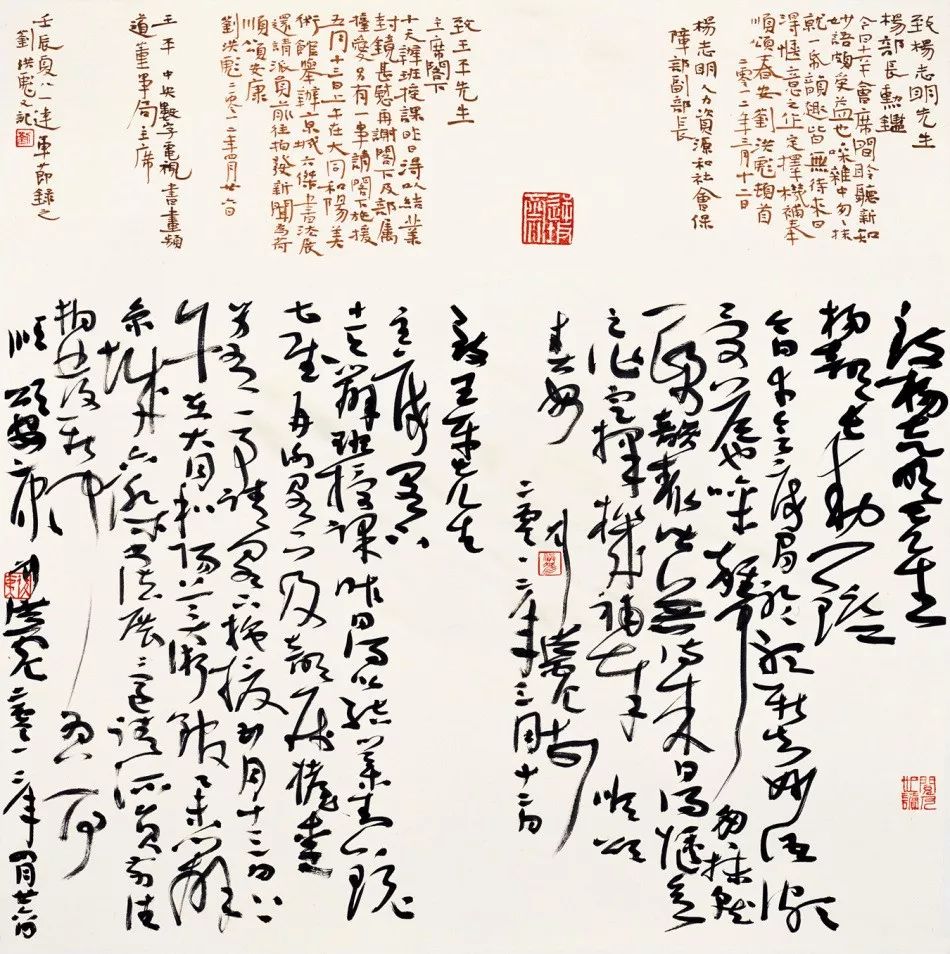 致楊志明先生
楊部長勳鑑
今日年會席間聆聽新知
妙語頗受益也嘈雜中匆匆採
就一兩韻趣皆無待來日
得愜意之作定擇機補奉
順頌春安劉洪彪頓首
二零一二年三月十二日
楊志明人力資源和社會保
障部副部長
致王平先生
主席閣下
十天辦班授課昨日得以結業
封鏡甚慰再謝閣下及部屬
擡愛另有一事請閣下施援
五月十三日上午在大同和陽美
術館舉辦京城六傑書法展
還請派員前往拍發新聞為荷
順頌安康
劉洪彪二零一二年四月廿六日
王平 中央數字電視書畫頻
道董事局主席
壬辰夏八一建軍節錄之
劉洪彪又記
致楊志明先生
楊部長勳鑑
今日年會席間聆聽新知妙語頗
受益也嘈雜中匆匆採就
一兩韻趣皆無待來日得愜意
之作定擇機補奉 順頌
春安
劉洪彪頓首
二零一二年三月十二日
致王平先生
主席閣下
十天辦班授課昨日得以結業封鏡
甚慰再謝閣下及部屬擡愛
另有一事請閣下施援五月十三日上
午在大同和陽美術館舉辦
京城六傑書法展還請派員前往
拍發新聞為荷
順頌安康 劉洪彪二零一二年四月廿六日